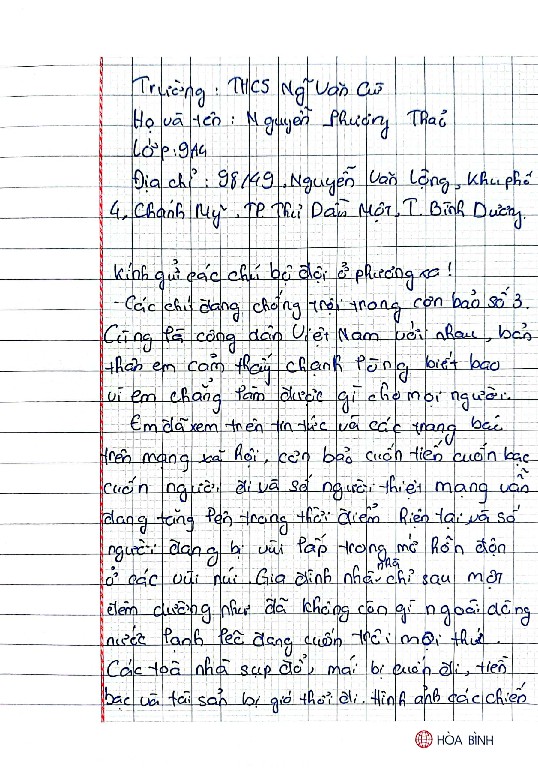 Trường : THCS Ngữ Văn Cừ
Họ và tên : Nguyễn Phương Thảo
Lớp : 9A4
Địa chỉ : 98/49, Nguyễn Văn Lộng, Khu phố
4, Chánh Mỹ, TP Thủ Dầu Một, T. Bình Dương.
Kính gửi các chú bộ đội ở phương xa !
- Các chú đang chống trọi trong cơn bảo số 3.
Cũng là công dân Việt Nam với nhau, bản
thân em cảm thấy chạnh lòng biết bao
vì em chẳng làm được gì cho mọi người.
Em đã xem trên tin tức và các trang báo
trên mạng xã hội, cơn bảo cuốn tiền cuốn bạc
cuốn người đi và số người thiệt mạng vẫn
đang tăng lên trong thời điểm hiện tại và số
người đang bị vùi lấp trong mớ hỗn độn
ở các vùi núi. Gia đình nhà nhà chỉ sau một
đêm dường như đã không còn gì ngoài dòng
nước lạnh lẽo đang cuốn trôi mọi thứ.
Các toà nhà sụp đổ, mái bị cuốn đi, tiền
bạc và tài sản bị gió thổi đi. Hình ảnh các chiến
HÒA BÌNH